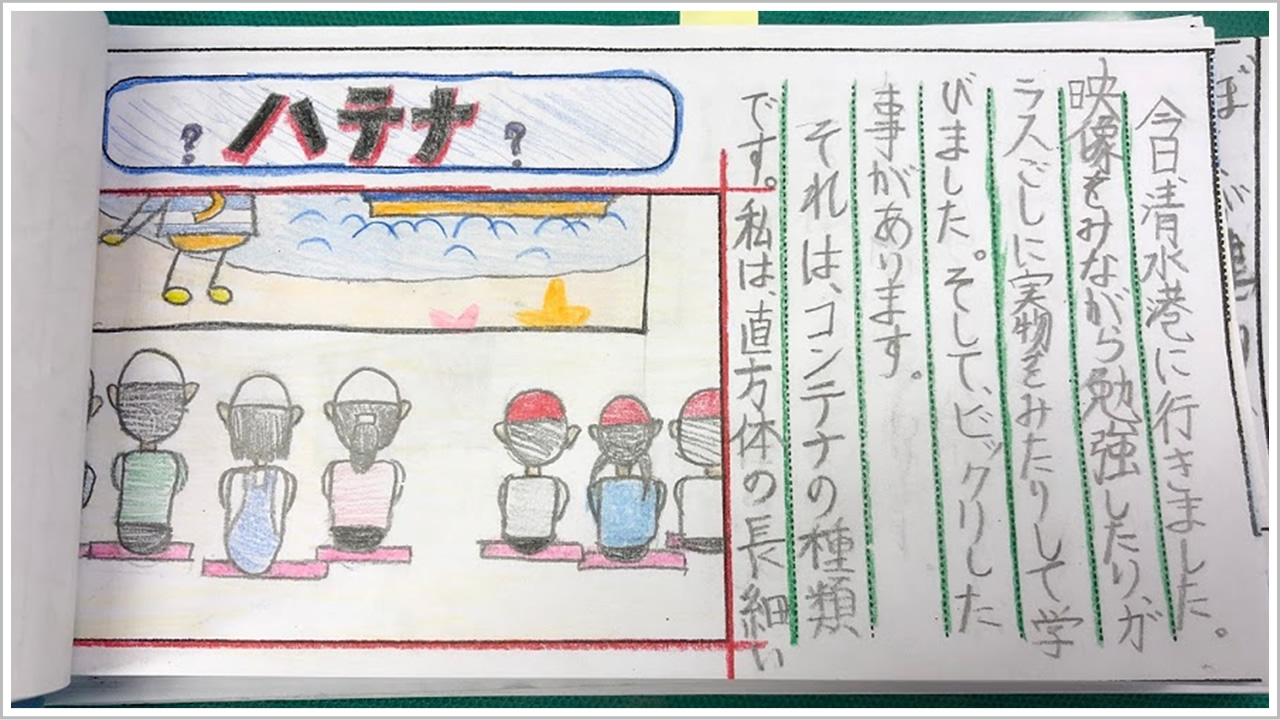 ? ハテナ ?
今日、清水港に行きました。
映像をみながら勉強したり、ガ
ラスごしに実物をみたりして学
びました。そして、ビックリした
事があります。
それは、コンテナの種類
です。私は、直方体の長細い